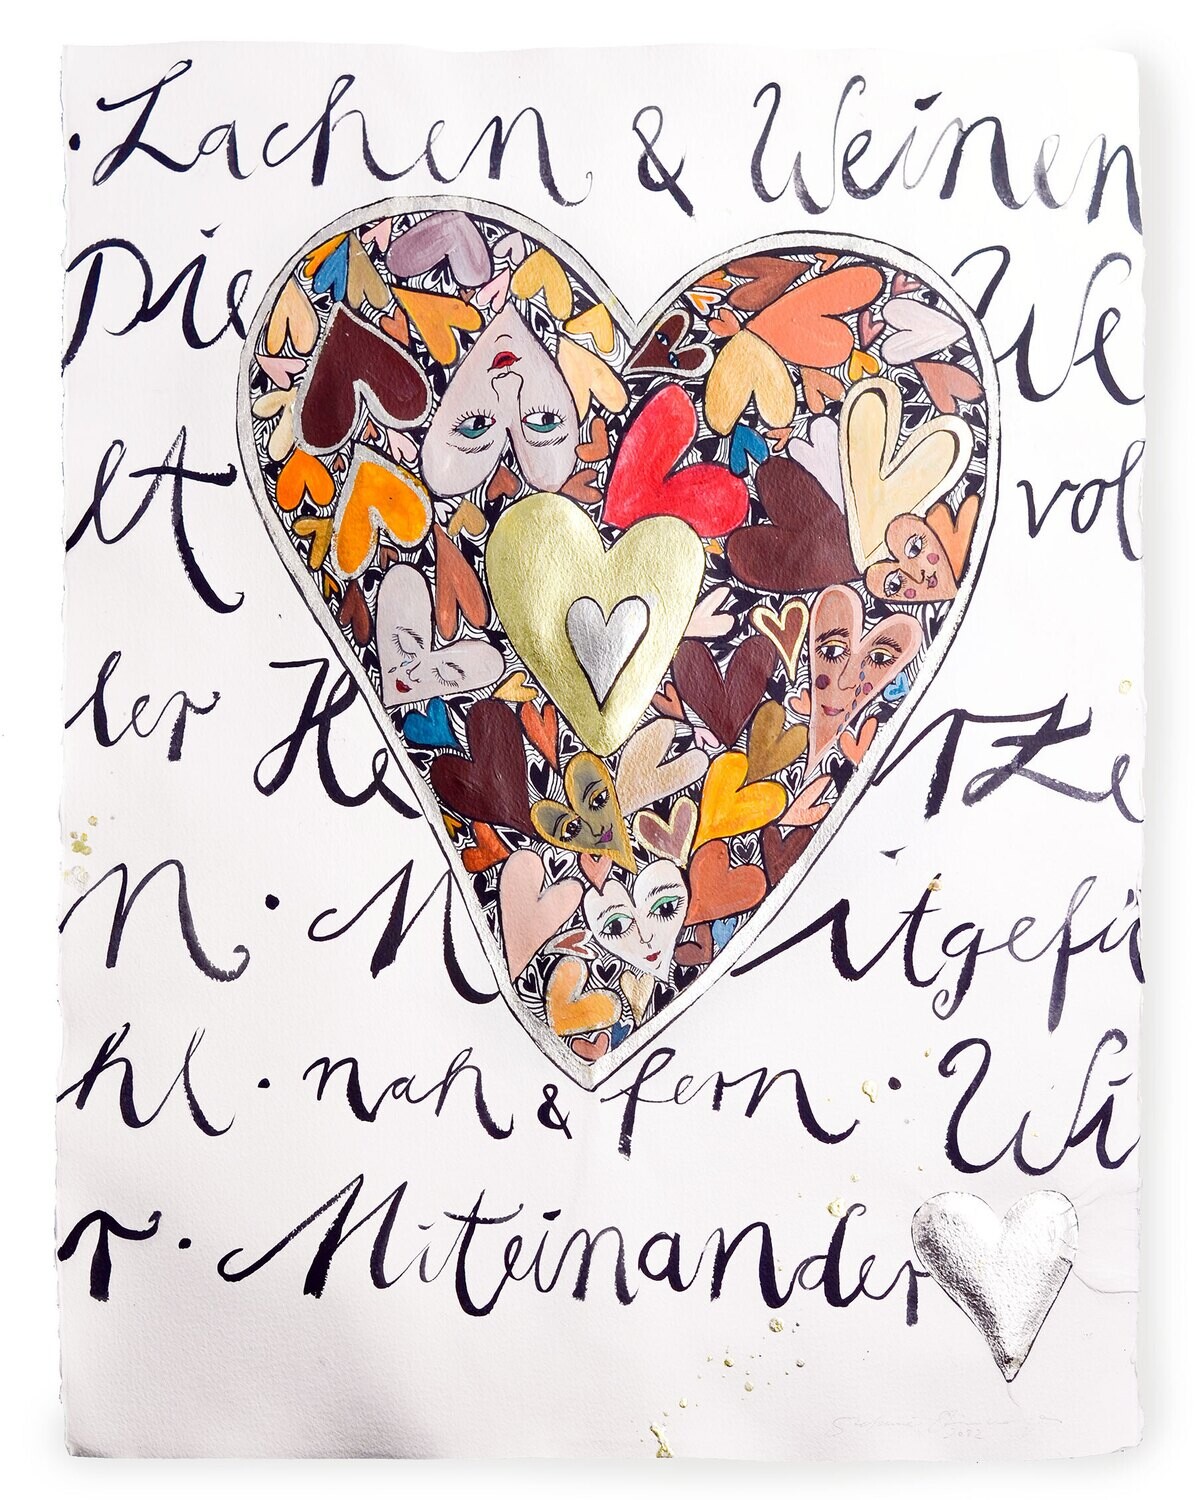 · Lachen & Weinen
Die We
lt vol
ler Herze
n · Mitgefü
hl · nah & fern · Wi
r · Miteinander